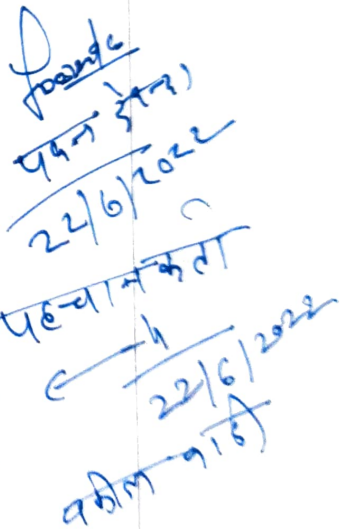 पवन
22/6/2022
पहचानकर्ता
22/6/2022
वकील वादी